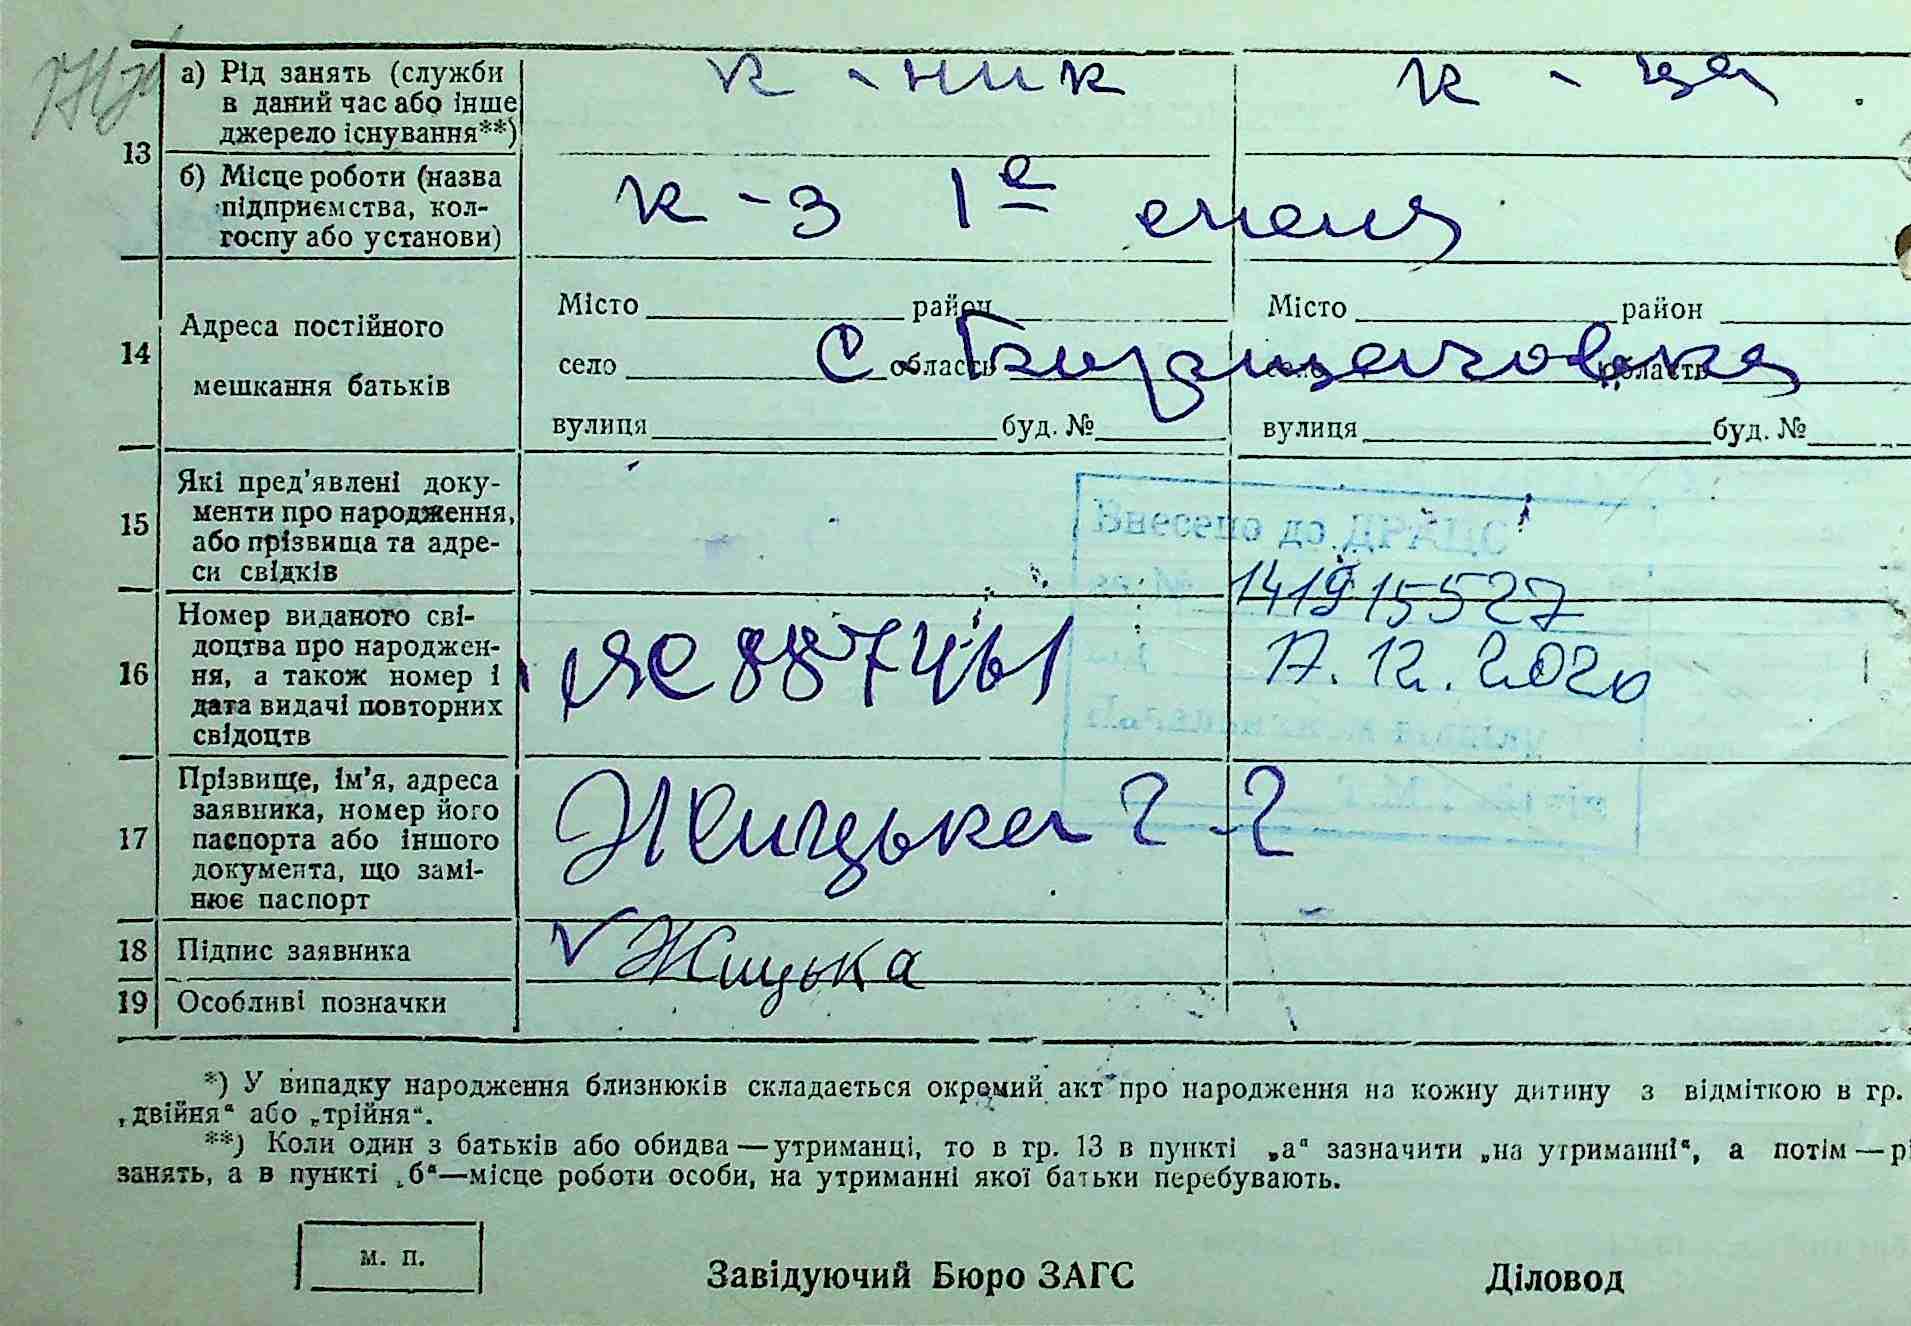 13
а) Рід занять (служби
в даний час або інше
джерело існування**)
к-ник
к-ца
б) Місце роботи (назва
підприємства, кол-
госпу або установи)
к-з 1е
14
Адреса постійного
мешкання батьків
Місто район
Місто район
село область
область
с.
вулиця буд. №
вулиця буд. №
15
Які пред’явлені доку-
менти про народження,
або прізвища та адре-
си свідків
Внесено до ДРАЦС
1419 15527
16
Номер виданого сві-
доцтва про народжен-
ня, а також номер і
дата видачі повторних
свідоцтв
ЯС 887461
17.12.2020
17
Прізвище, ім’я, адреса
заявника, номер його
паспорта або іншого
документа, що замі-
нює паспорт
Жицька Г Г
18
Підпис заявника
Жицька
19
Особливі позначки
*) У випадку народження близнюків складається окремий акт про народження на кожну дитину з відміткою в гр.
„двійня“ або „трійня“.
**) Коли один з батьків або обидва—утриманці, то в гр. 13 в пункті „а“ зазначити „на утриманні“, а потім—рі
занять, а в пункті „б“—місце роботи особи, на утриманні якої батьки перебувають.
м. п.
Завідуючий Бюро ЗАГС
Діловод